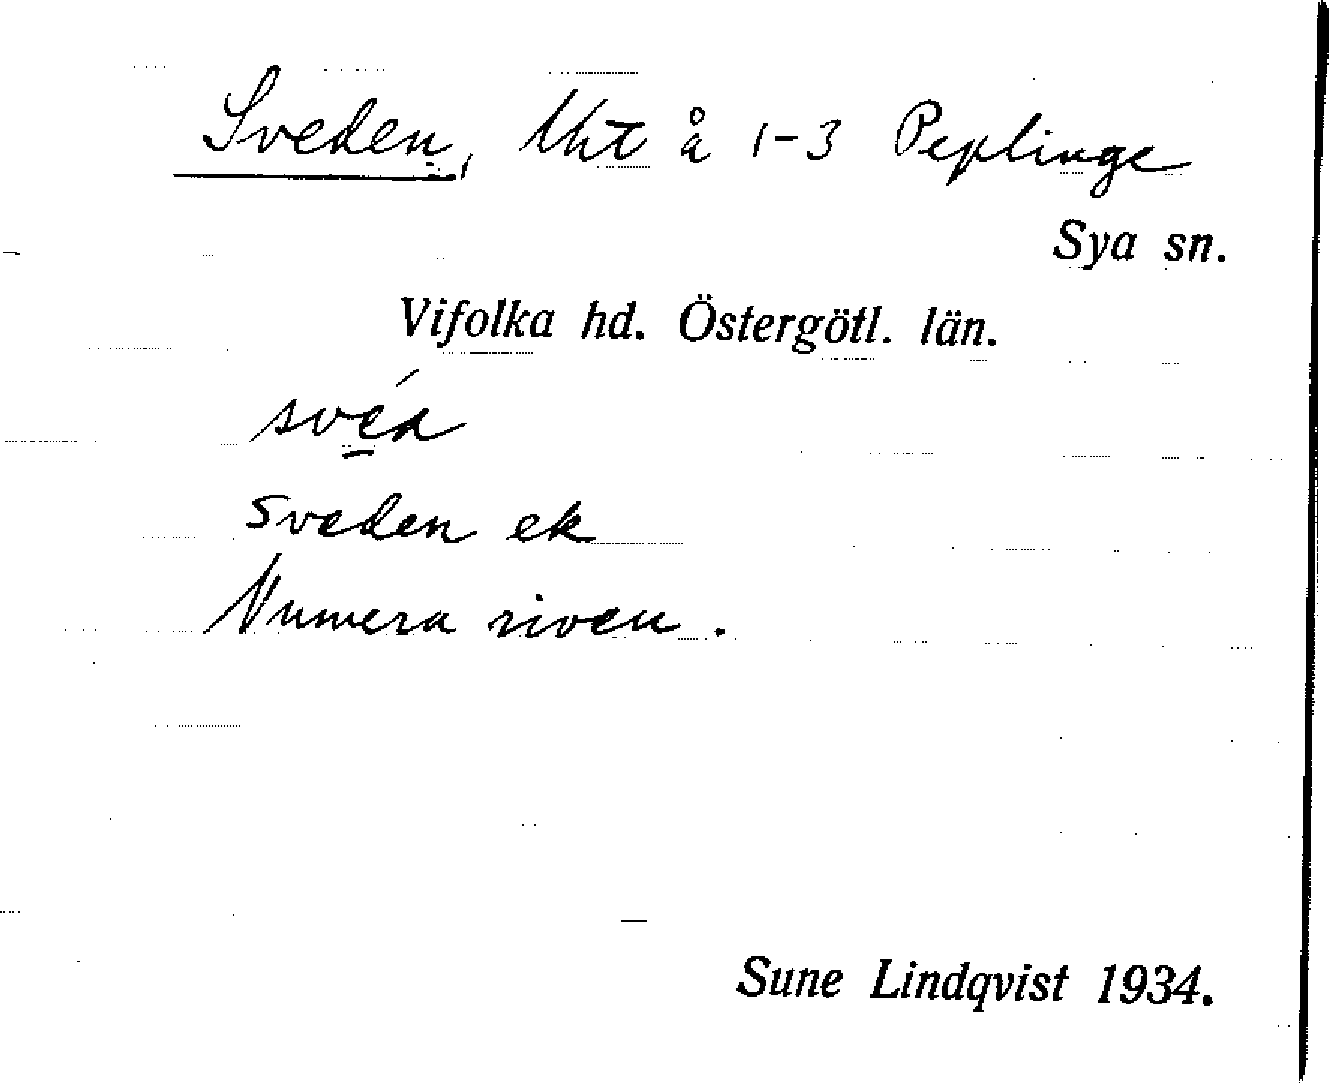 Sveden, Lht å 1-3 Peplinge
Sya sn.
Vifolka hd. Östergötl. län.
Sveden ek
Numera riven.
Sune Lindqvist 1934.